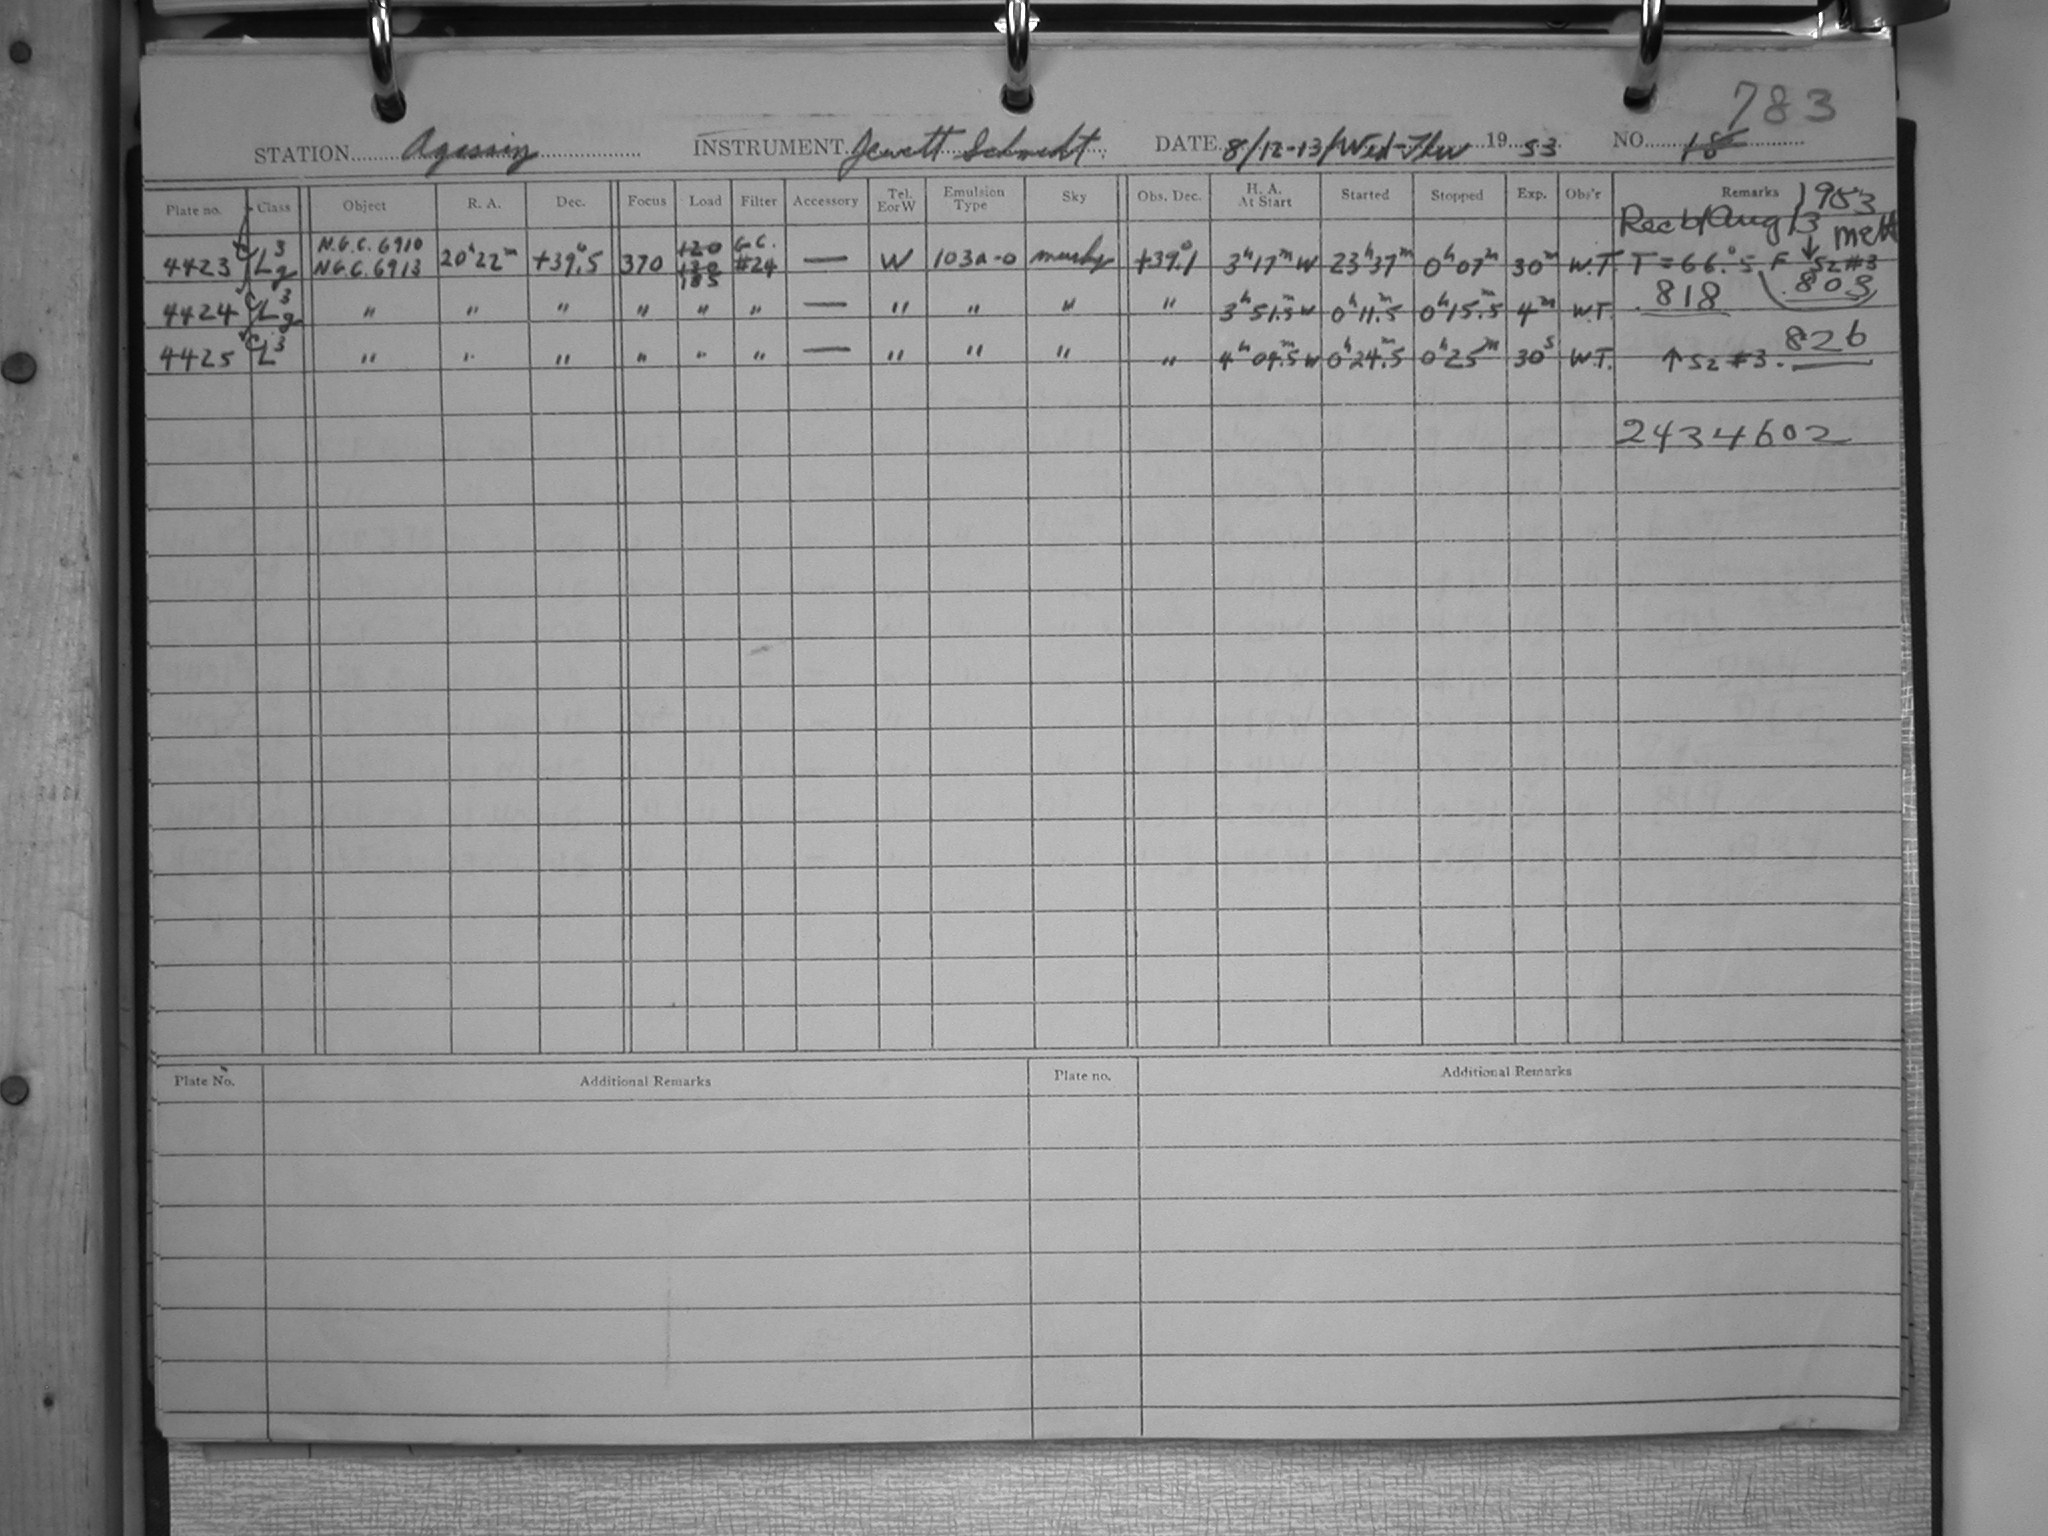 783
STATION Agassiz INSTRUMENT Jewett Schmidt DATE 8/12-13/Wed-Thu 1953 NO. 18
Plate no. Class Object R. A. Dec. Focus Load Filter Accessory Tel. E or W Emulsion Type Sky Obs. Dec. H. A. At Start Started Stopped Exp. Obs'r Remarks
1953
Rec'd Aug 13
4423 L3g N.G.C. 6910 N.G.C. 6913 20h22m +39°.5 370 120 130 185 G.C. #24 — W 103a-O murky +39°.1 3h17mW 23h37m 0h07m 30m W.T. T=66.°5 F ↓ Sz #3
818 803
4424 L3g " " " " " " — " " " " 3h51.m5W 0h11.m5 0h15.m5 4m W.T.
4425 L3 " " " " " " — " " " " 4h09.m5W 0h24.m5 0h25m 30s W.T. ↑ Sz #3. 826
2434602
Plate No. Additional Remarks Plate no. Additional Remarks